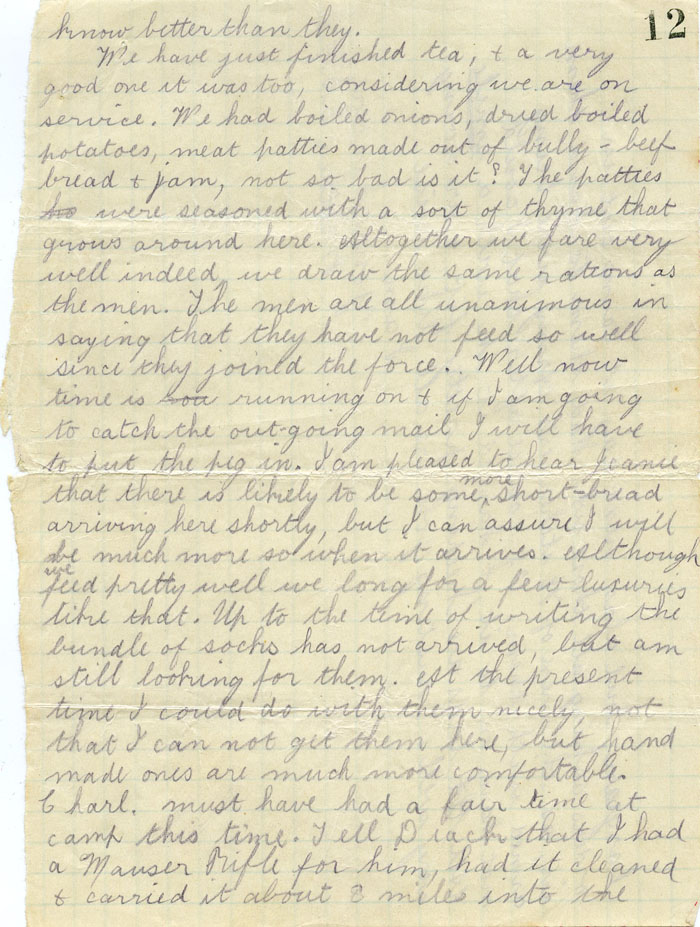 12
know better than they.
We have just finished tea, & a very
good one it was too, considering we are on
service. We had boiled onions, dried boiled
potatoes, meat patties made out of bully-beef
bread & jam, not so bad is it? The patties
were seasoned with a sort of thyme that
grows around here. Altogether we fare very
well indeed, we draw the same rations as
the men. The men are all unanimous in
saying that they have not feed so well
since they joined the force. Well now
time is running on & if I am going
to catch the out-going mail I will have
to put the peg in. I am pleased to hear Jeanie
that there is likely to be some more short-bread
arriving here shortly, but I can assure I will
be much more so when it arrives. Although
we feed pretty well we long for a few luxuries
like that. Up to the time of writing the
bundle of socks has not arrived, but am
still looking for them. At the present
time I could do with them nicely, not
that I can not get them here, but hand
made ones are much more comfortable.
Charl. must have had a fair time at
camp this time. Tell that I had
a Mauser Rifle for him, had it cleaned
& carried it about miles into the